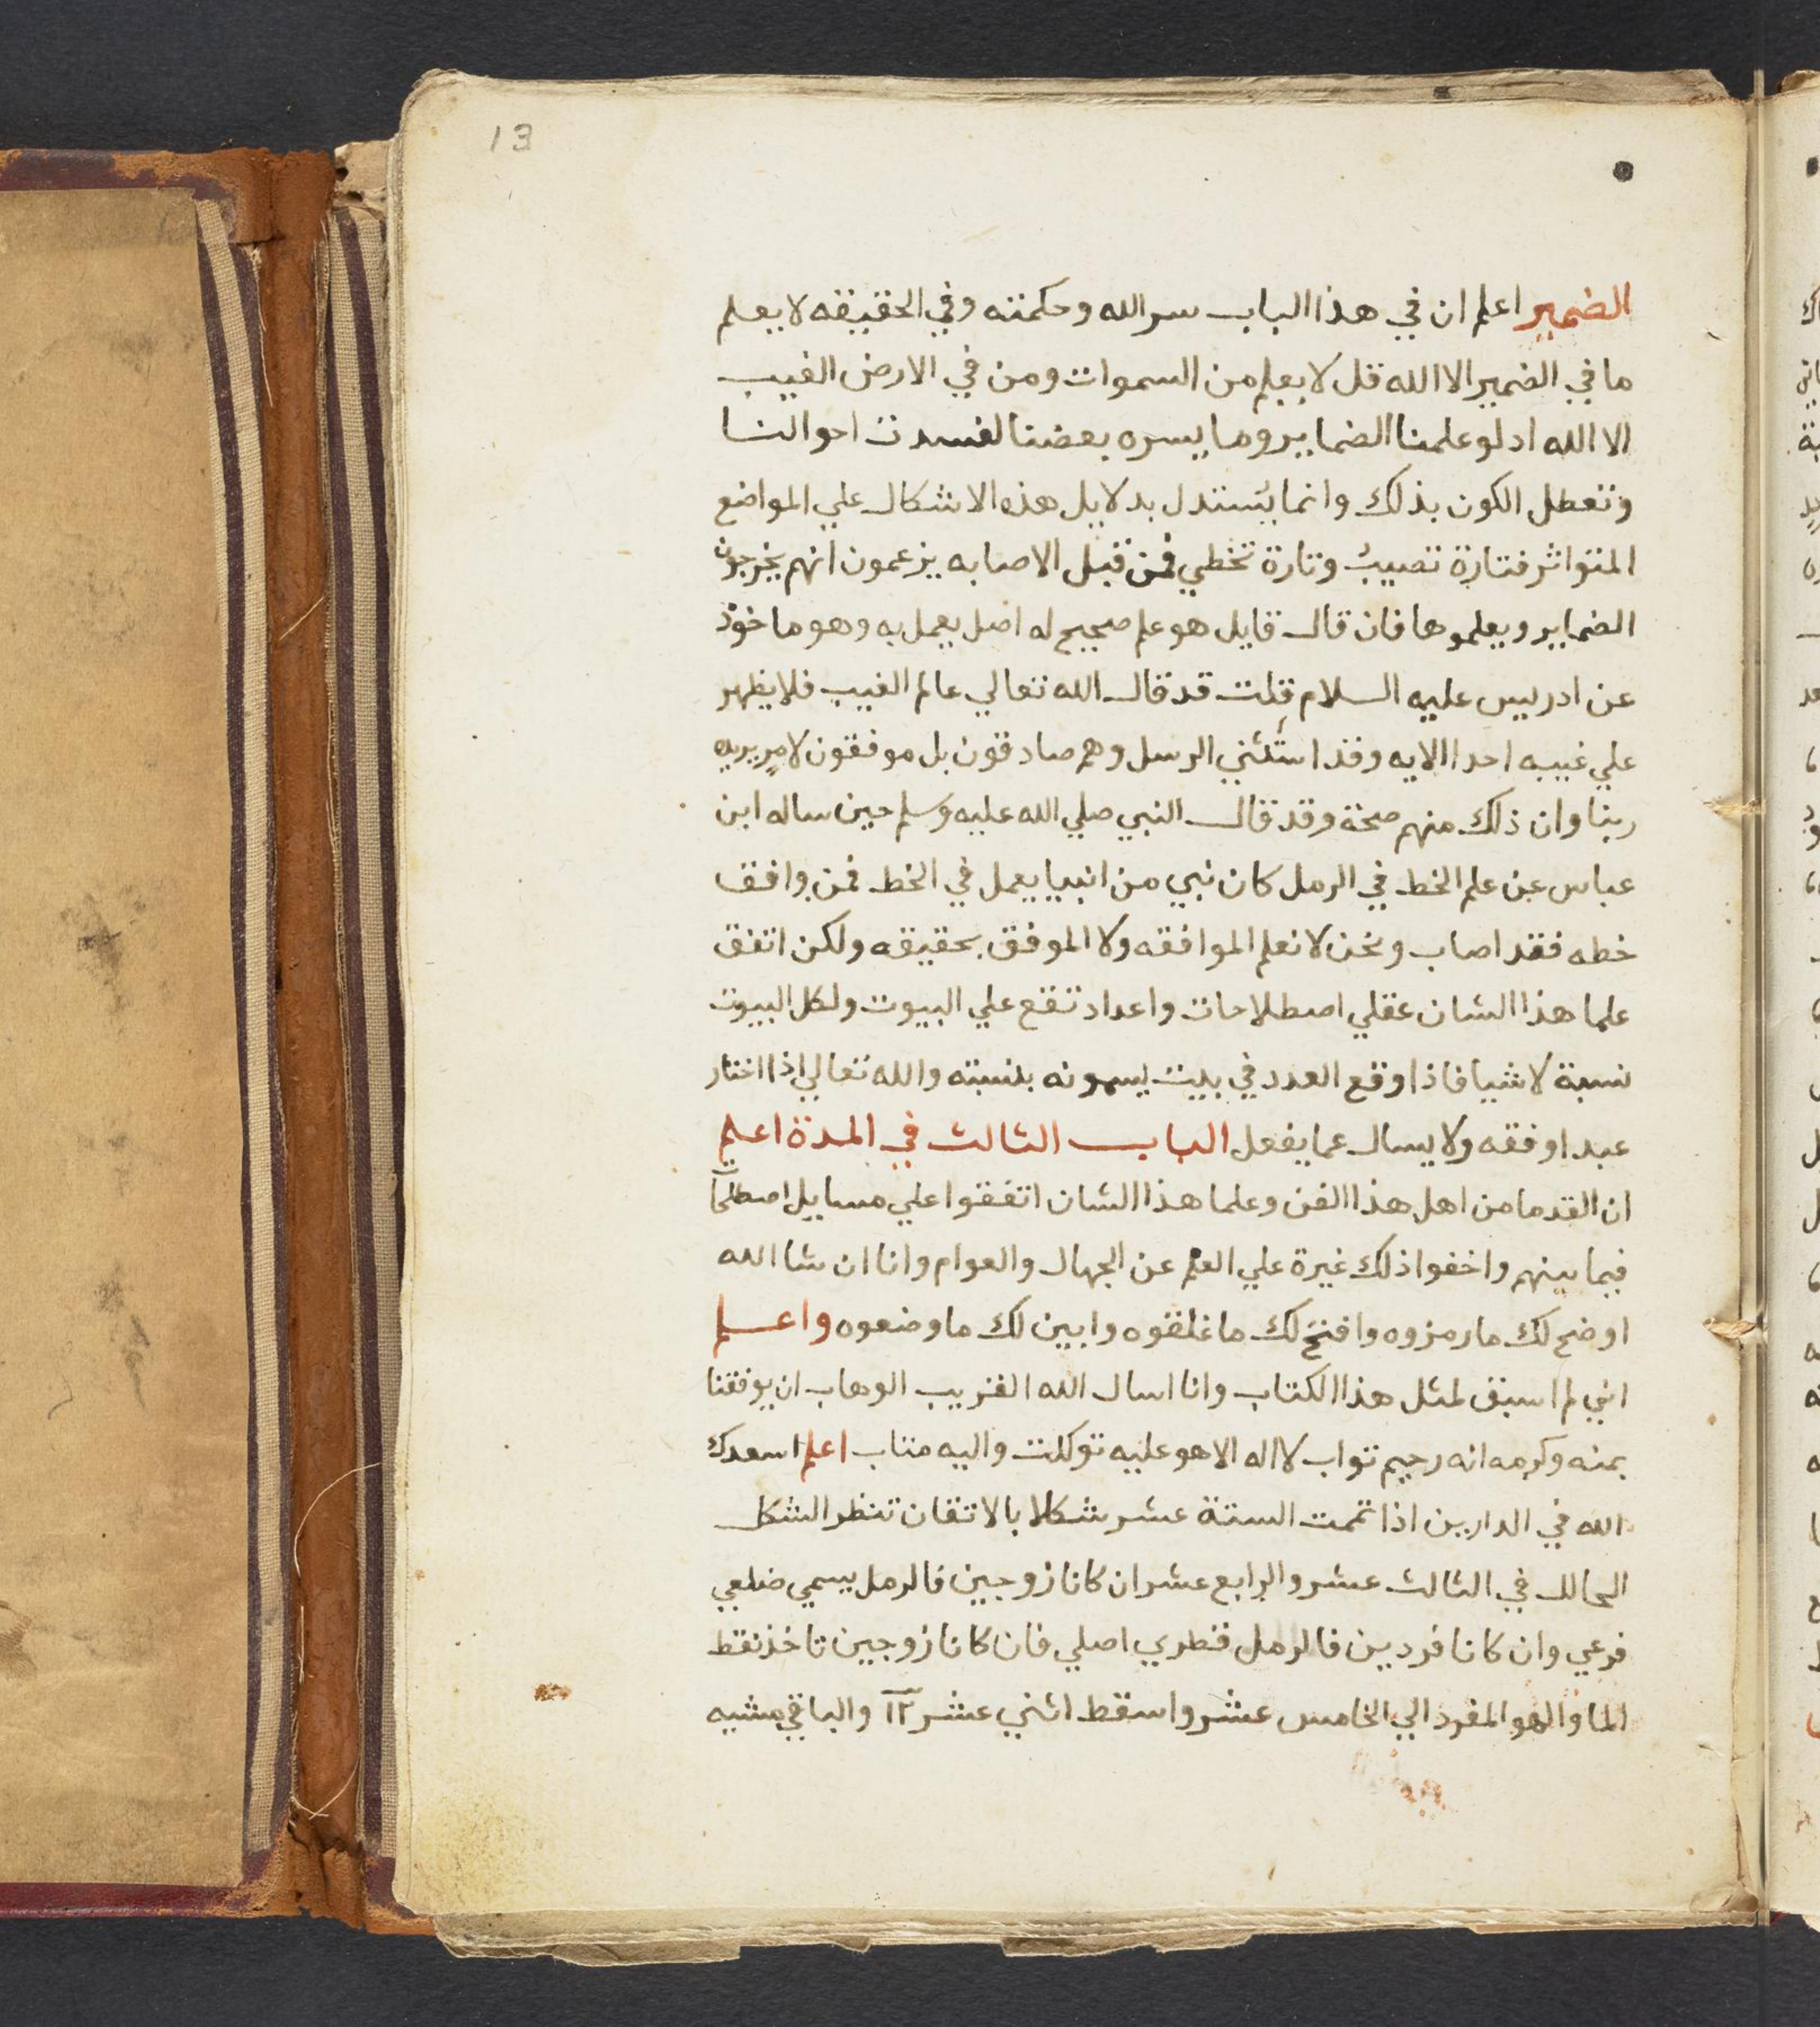 13
الضمير اعلم ان في هذا الباب سر الله وحكمته وفي الحقيقه لا يعلم
ما في الضمير الا الله قل لا يعلم من السموات ومن في الارض الغيب
الا الله اد لو علمنا الضماير وما يسره بعضنا لفسدت احوالنا
وتعطل الكون بذلك وانما يستدل بدلايل هذه الاشكال علي المواضع
المتواتر فتارة تصيب وتارة تخطي فمن قبل الاصابه يزعمون انهم يخرجون
الضماير ويعلموها فان قال قايل هو علم صحيح له اصل يعمل به وهو ماخوذ
عن ادريس عليه السلام قلت قد قال الله تعالي عالم الغيب فلا يظهر
علي غيبه احدا الايه وقد استثني الرسل وهم صادقون بل موفقون لامر يريده
ربنا وان ذلك منهم صحة وقد قال النبي صلي الله عليه وسلم حين ساله ابن
عباس عن علم الخط في الرمل كان نبي من انبيا يعمل في الخط فمن وافق
خطه فقد اصاب ونحن لا نعلم الموافقه ولا الموفق بحقيقه ولكن اتفق
علما هذا الشان عقلي اصطلاحات واعداد تقع علي البيوت ولكل البيوت
نسبة لاشيا فاذا وقع العدد في بيت يسمونه بنسبته والله تعالي اذا اختار
عبدا وفقه ولا يسال عما يفعل الباب الثالث في المدة اعلم
ان القدما من اهل هذا الفن وعلما هذا الشان اتفقوا علي مسايل اصطلحا
فيما بينهم واخفوا ذلك غيرة علي العلم عن الجهال والعوام وانا ان شا الله
اوضح لك ما رمزوه وافتح لك ما غلقوه وابين لك ما وضعوه واعلم
اني لم اسبق لمثل هذا الكتاب وانا اسال الله القريب الوهاب ان يوفقنا
بمنه وكرمه انه رحيم تواب لا اله الا هو عليه توكلت واليه متاب اعلم اسعدك
الله في الدارين اذا تمت الستة عشر شكلا بالاتقان تنظر الشكل
الحالل في الثالث عشر والرابع عشر ان كانا زوجين فالرمل يسمي ضلعي
فرعي وان كانا فرديين فالرمل قطري اصلي فان كانا زوجين تاخذ نقط
الما والهو المفرد الي الخامس عشر واسقط اثني عشر ١٢ والباقي مشيه